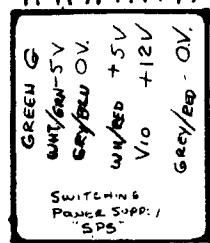 GREEN G
WHT/GRN -5V
GRY/BRU 0V.
WH/RED +5V
VIO +12V
GREY/RED - 0V.
SWITCHING
POWER SUPP:/
"SPS"